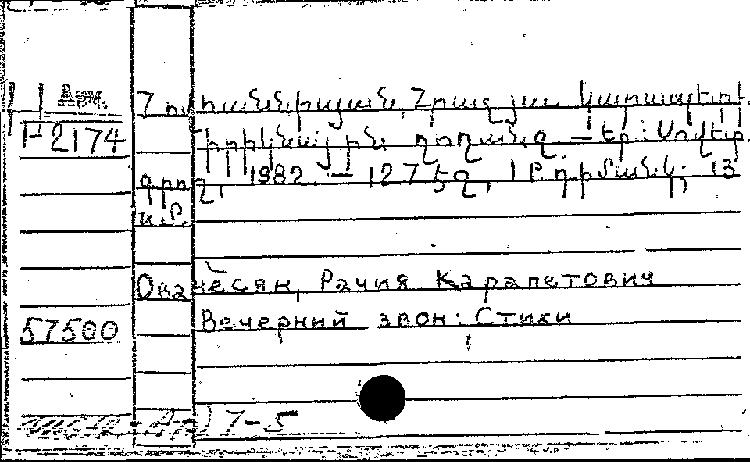 Арм.
Հովհաննիսյան, Հրաչյա Կարապետի.
1-2174
Իրիկնային ղողանջ. — Եր.: Սովետ.
գրող, 1982. — 127 էջ, 1 թ. դիմանկ.; 13
սմ.
Ованесян, Рачия Карапетович
57500
Вечерний звон: Стихи
7-5